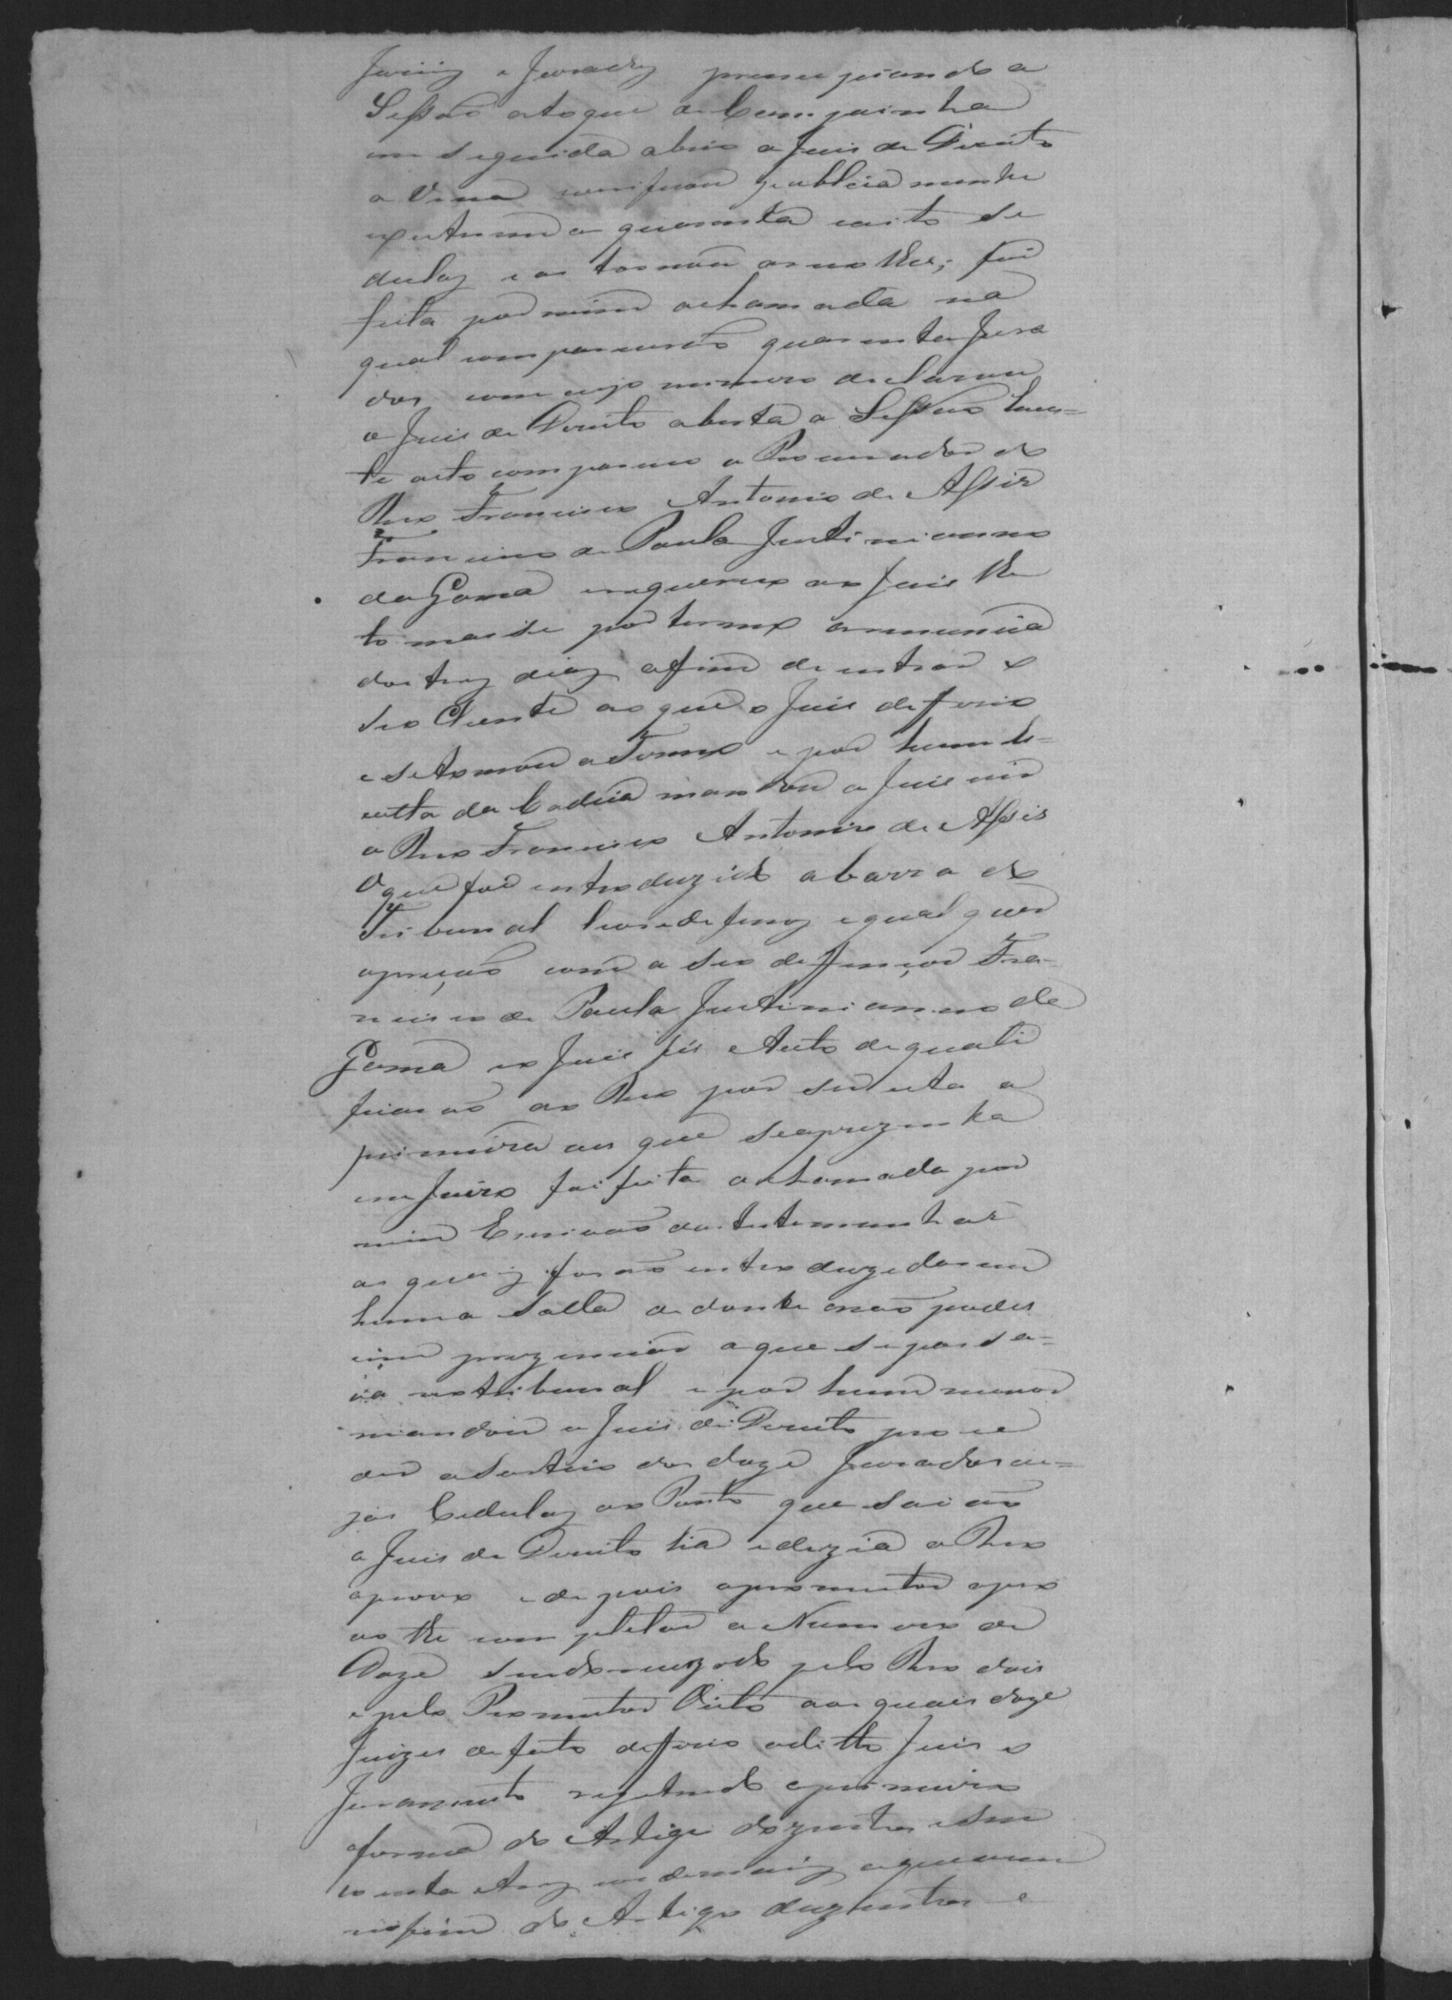 Juiis e Jurados prensipiando a
Sessão o toque de Campainha
em seguida abrio o Juis de Direito
a Urna verificou publicamente
existirem a quarenta e oito se
dulas e as tornou a recolher; foi
feita por mim a chamada na
qual comparecerão quarenta Jura
dos com cujo numero declarou
o Juis de Direito aberta a Sessão nes-
te acto compareceo o Procurador do
Reo Francisco Antonio de Assis
Francisco de Paula Justinianno
da Gama requereo ao Juis lhe
tomasse por termo a renuncia
dos tres dias afim de entrar o
seo Cliente ao que o Juis deferio
e se tomou o Termo e por huma es-
colta da Cadeia mandou o Juis vir
o Reo Francisco Antonio de Assis
O que foi introduzido a barra do
Tribunal livre de ferros e qual quer
opreção com o seo deffençor Fra-
ncisco de Paula Justinianno da
Gama e o Juis fes Auto de quali
ficação ao Reo por ser esta a
primeira ves que se aprezenta
em Juizo foi feita a chamada por
mim Escrivão das testemunhas
as quais forão introduzidas em
huma Salla de donde não podes
sem prezenciar o que se passa-
va no tribunal e por hum menor
mandou o Juis de Direito proce
der o Sorteio dos doze Jurados cu-
jas Cedulas ao Ponto que saião
o Juis de Direito lia e dizia o Reo
aprovo e depois o promotor apro
vo the completar o Numero de
Doze sendo recuzado pelo Reo dois
e pelo Promotor Oito aos quais doze
Juizes de facto defferio o ditto Juis o
Juramento repetindo o primeiro
a forma do Artigo duzentos e sin
coenta e tres e os demais o que vem
no fim do Artigo duzentos e